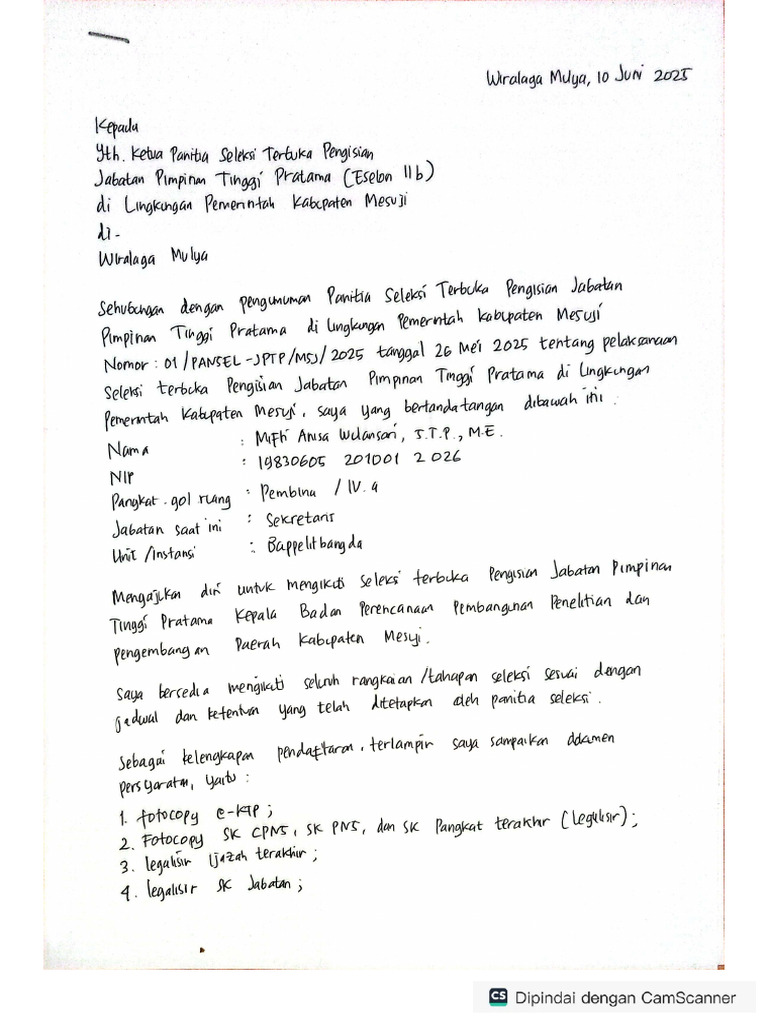 Wiralaga Mulya, 10 Juni 2025
Kepada
Yth. Ketua Panitia Seleksi Terbuka Pengisian
Jabatan Pimpinan Tinggi Pratama (Eselon IIb)
di Lingkungan Pemerintah Kabupaten Mesuji
di-
Wiralaga Mulya
Sehubungan dengan pengumuman Panitia Seleksi Terbuka Pengisian Jabatan
Pimpinan Tinggi Pratama di Lingkungan Pemerintah Kabupaten Mesuji
Nomor : 01/PANSEL-JPTP/MSJ/2025 tanggal 26 Mei 2025 tentang pelaksanaan
Seleksi terbuka Pengisian Jabatan Pimpinan Tinggi Pratama di Lingkungan
Pemerintah Kabupaten Mesuji, saya yang bertandatangan dibawah ini :
Nama : Mifti Anisa Wulansari, S.T.P., M.E.
NIP : 19830605 201001 2 026
Pangkat.gol ruang : Pembina / IV.a
Jabatan saat ini : Sekretaris
Unit /Instansi : Bappelitbangda
Mengajukan diri untuk mengikuti seleksi terbuka Pengisian Jabatan Pimpinan
Tinggi Pratama Kepala Badan Perencanaan Pembangunan Penelitian dan
pengembangan Daerah Kabupaten Mesuji.
Saya bersedia mengikuti seluruh rangkaian /tahapan seleksi sesuai dengan
jadwal dan ketentuan yang telah ditetapkan oleh panitia seleksi.
Sebagai kelengkapan pendaftaran, terlampir saya sampaikan dokumen
persyaratan, yaitu :
1. fotocopy e-KTP ;
2. Fotocopy SK CPNS, SK PNS, dan SK Pangkat terakhir (legalisir) ;
3. legalisir Ijazah terakhir ;
4. legalisir SK Jabatan ;
CS Dipindai dengan CamScanner